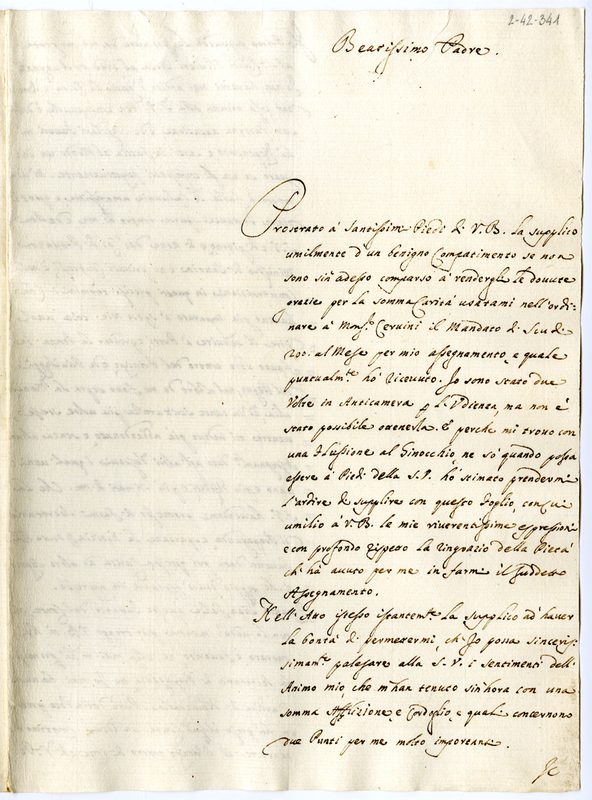 2-42-341
Beatissimo Padre.
Prostrato à Santissimi Piedi di V.B. la supplico
umilmente d'un benigno Compatimento se non
sono sin'adesso comparso à rendergli le douute
grazie per la somma Carità usatami nell'ordi-
nare à Mons.r Ceruini il Mandato di Scudi
200. al Mese per mio assegnamento, e quale
puncualm.te hò riceuuto. Io sono stato due
Volte in Anticamera p L'Udienza, ma non è
stato possibile ottenerla. E perche mi trouo con
una Flussione al Ginocchio, ne sò quando possa
essere à Piedi della S.V. hò stimato prendermi
L'ardire di supplire con questo Foglio, con cui
umilio à V.B. le mie riuerentissime espressioni
e con profondo rispetto la ringrazio della Pietà
ch'hà auuto per me in farmi il suddetto
Assegnamento.
Nell'Atto istesso istantem.te La supplico ad hauer
la bontà di permettermi, ch'Io possa sinceris-
simam.te palesare alla S.V. i sentimenti dell'
Animo mio, che m'han tenuto sin'hora con una
somma Afflizione, e Cordoglio, e quali concernono
due Punti per me molto importanti.